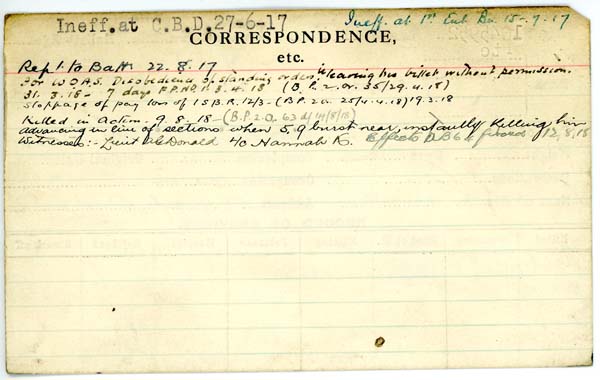 Ineff. at C.B.D. 27-6-17
Ineff. at 1st Ent. Bn. 15-7-17
CORRESPONDENCE,
etc.
Rept. to Battn 22.8.17
For W.O.A.S. Disobedience of standing orders ie leaving his billet without permission.
31.3.18 - 7 days F.P. No. 1. 3.4.18 (B.P. 2. or. 35/29.4.18)
stoppage of pay loss of 1 S.B.R. 12/3 - (B.P. 2. o. 25/ .4.18) 19.3.18
Killed in Action. 9.8.18 - (B.P. 2. O. 63 d/19/8/18)
advancing in line of sections when 5.9 burst near, instantly killing him
Witnesses:- Lieut McDonald & Hannah K. Effects D.B 6 & forwd 12/8/18